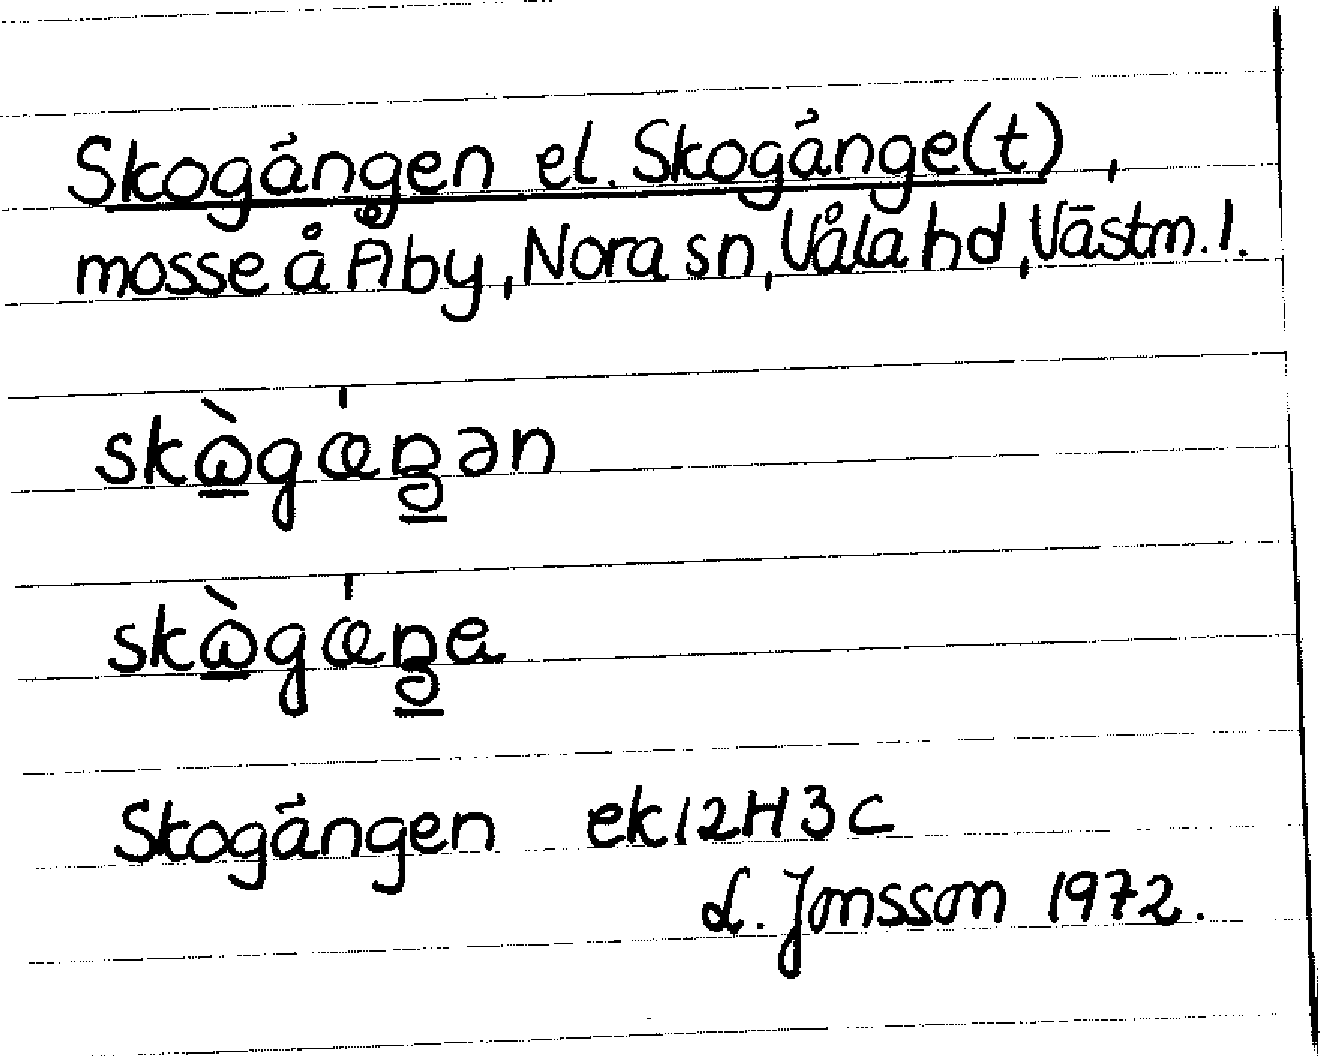 Skogången el. Skogånge(t),
mosse å Åby, Nora sn, Våla hd, Västm. l.
skɷ̀gáŋən
skɷ̀gáŋe
Skogången ek 12H3c
L. Jonsson 1972.